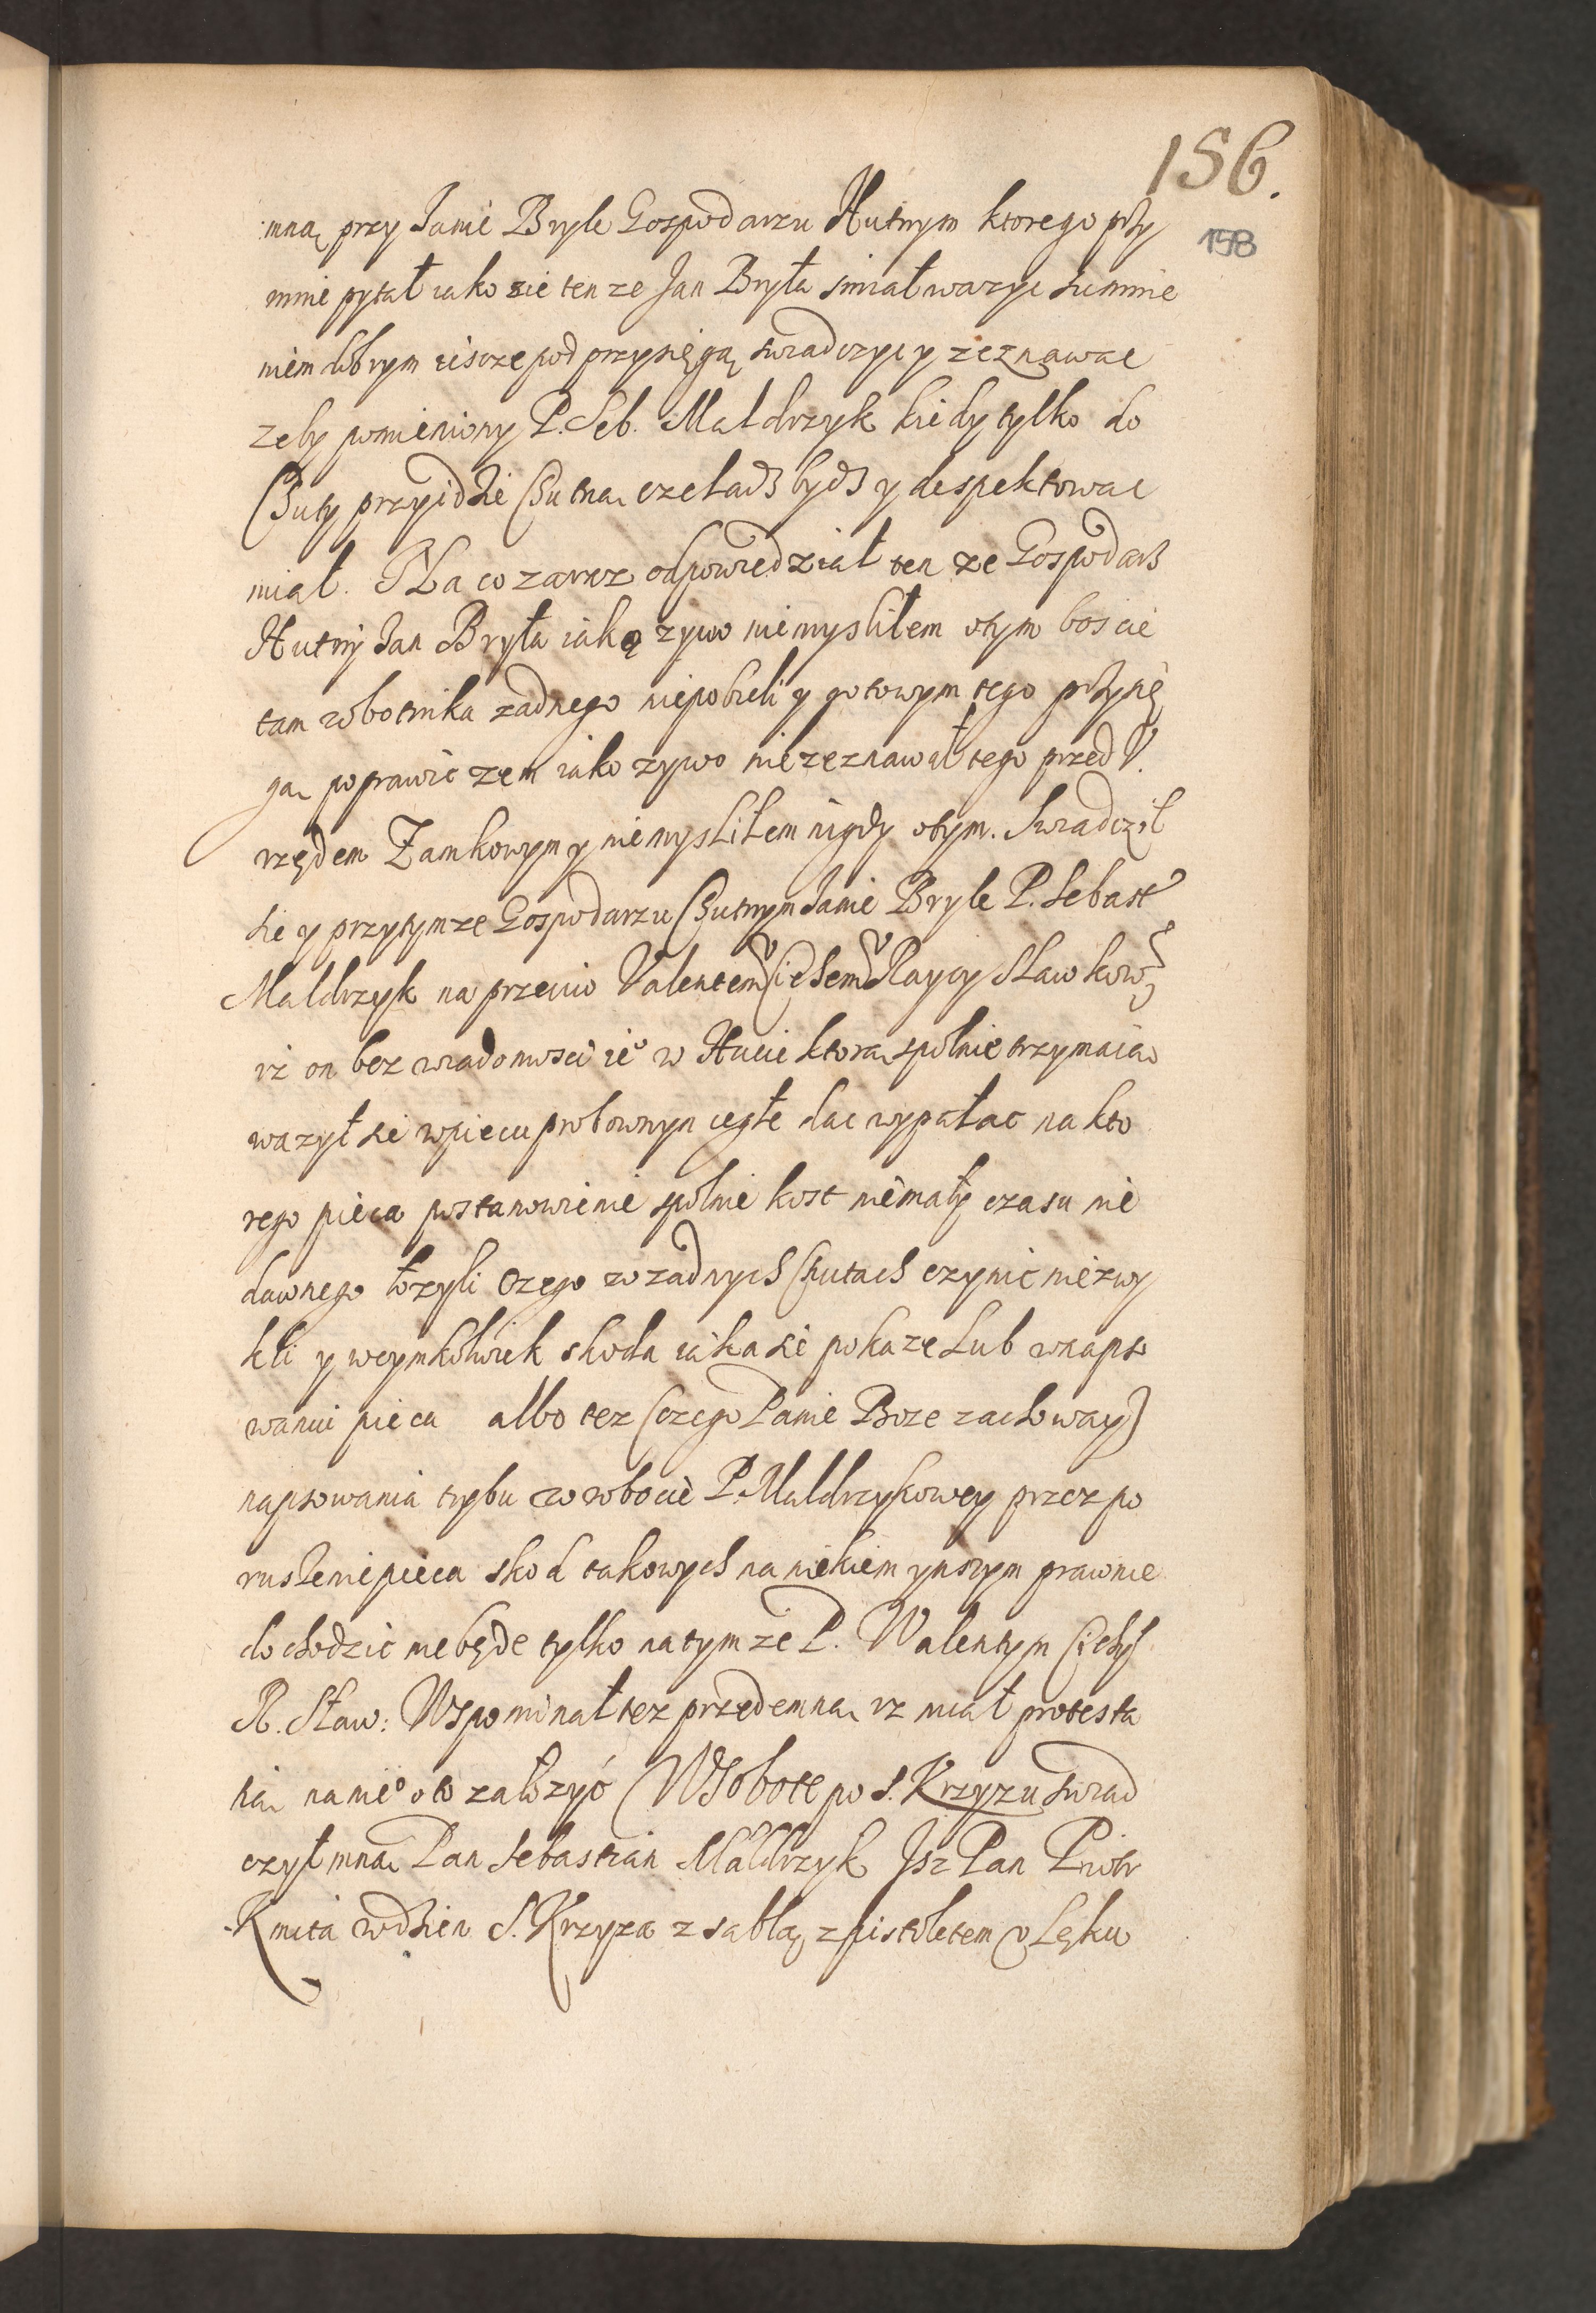 156.
158
mną przy Janie Bryle Gospodarzu Hutnym ktorego przy
mnie pytał iako sie tenze Jan Bryła smiał wazyc sumnie
niem dobrym iescze pod przysięgą swiadczyc y zeznawac
zeby pomieniony P. Seb. Maldrzyk kiedy tylko do
Huty przyidzie Hutną czeladz bydz y despektowac
miał. Na co zaraz odpowiedział ten ze Gospodarz
Hutny Jan Bryła iako zywo niemysliłem otym boscie
tam robotnika zadnego niepobieli y gotowym tego przysię
gą poprawic zem iako zywo niezeznawał tego przed V
rzędem Zamkowym y niemysliłem nigdy otym. Swiadcził
sie y przytymze Gospodarzu Hutnym Janie Bryle P. Sebast
Maldrzyk na przeciw Valentem Raycy Sławkow
iz on bez wiadomosci ie° w Hucie ktorą spolnie trzymaią
wazył sie wpiecu probownym cegłe dac wypałac na kto
rego pieca postanowienie spolnie koszt niemały czasu nie
dawnego łozyli czego w zadnych hutach czynic niezwy
kli y wczymkolwiek skoda iaka sie pokaze lub wnapso
waniu pieca albo tez (czego Panie Boze zachoway)
napsowania trybu w robocie P. Maldrzykowey przez po
ruszenie pieca skod takowych na niekiem ynszym prawnie
dochodzic niebęde tylko natymze P. Walentym
R. Sław: Wspominał tez przedemną iz miał protesta
tią nanie° oto załozyć Wsobote po S. Krzyzu swiad
czył mną Pan Sebastian Maldrzyk Jsz Pan Piotr
Kmita wdzien S. Krzyza z sablą z pistoletem v Lęku